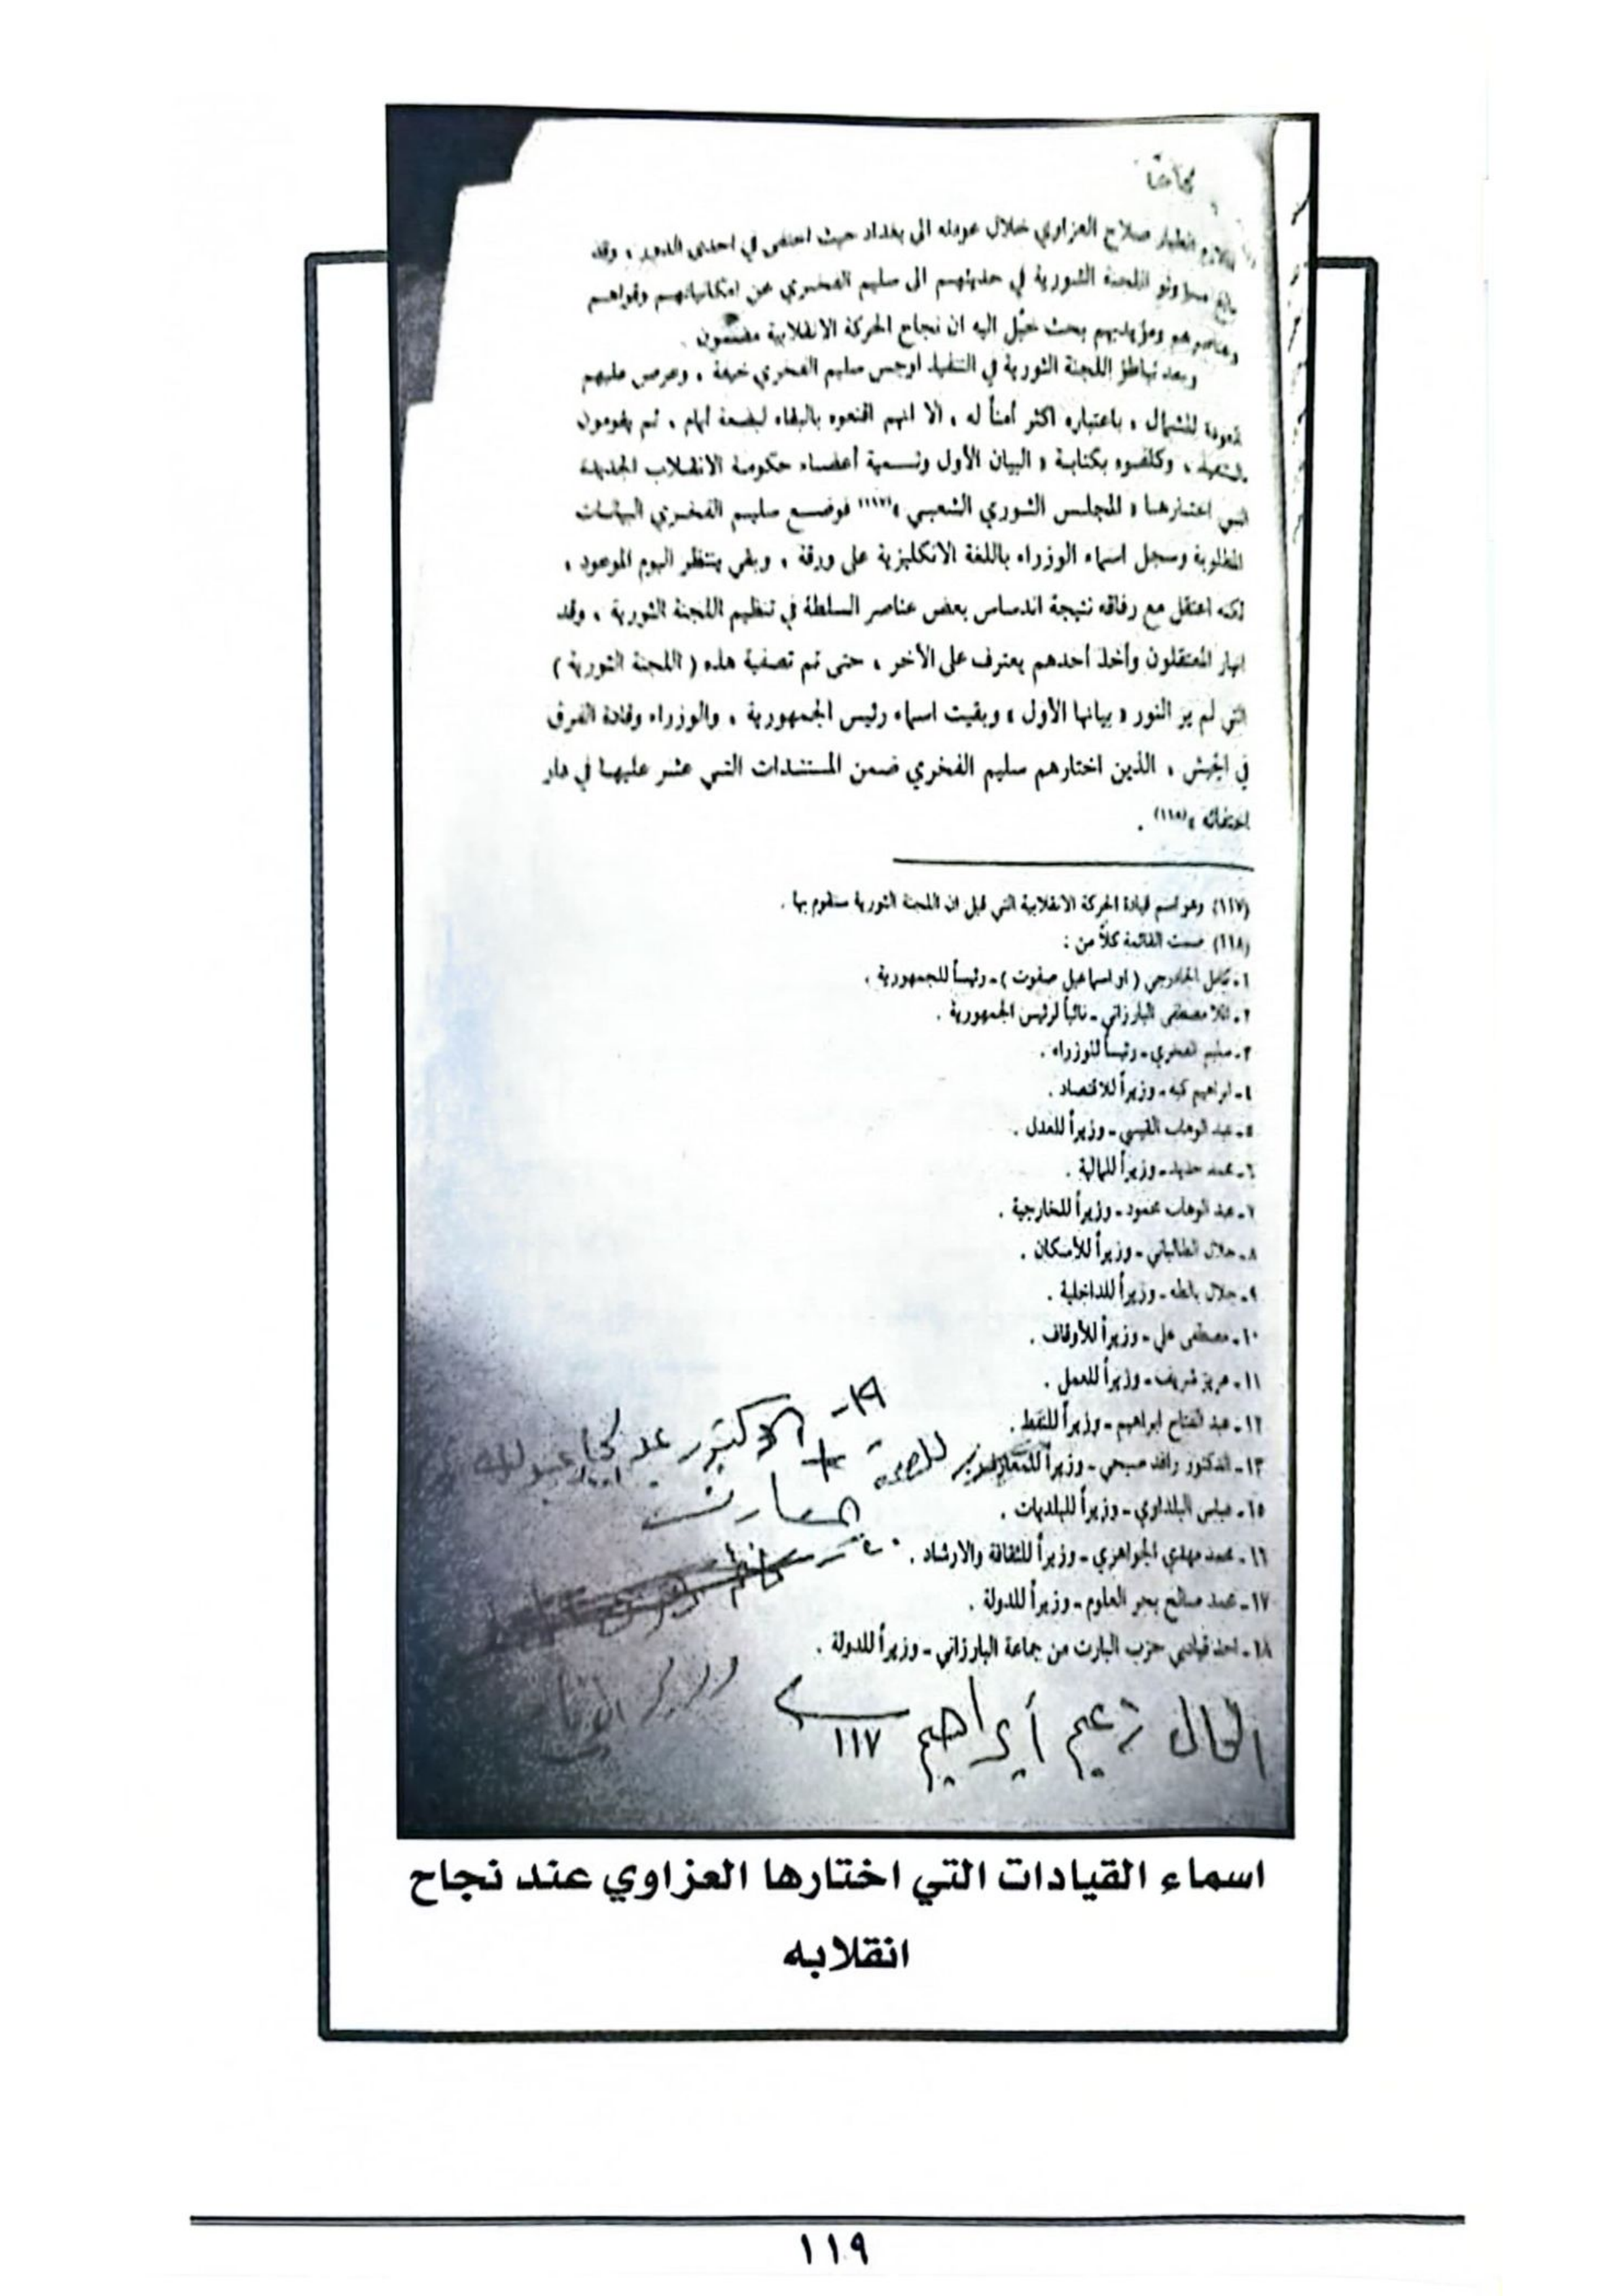 الطيار صلاح العزاوي خلال عودته الى بغداد حيث اختفى في احدى الدور ، وقد
اللجنة الثورية في حديثهم الى سليم الفخري عن امكانياتهم وقواهم
ومؤيديهم بحث خيّل اليه ان نجاح الحركة الانقلابية مضمون .
وبعد تباطؤ اللجنة الثورية في التنفيذ اوجس سليم الفخري خيفة ، وعرض عليهم
العودة للشمال ، باعتباره اكثر أمناً له ، الا انهم اقنعوه بالبقاء لبضعة أيام ، ثم يقومون
بالتنفيذ ، وكلفوه بكتابة « البيان الأول وتسمية أعضاء حكومة الانقلاب الجديدة
التي اختارها « للمجلس الثوري الشعبي »(١١٧) فوضع سليم الفخري البيانات
المطلوبة وسجل اسماء الوزراء باللغة الانكليزية على ورقة ، وبقي ينتظر اليوم الموعود ،
لكنه اعتقل مع رفاقه نتيجة اندساس بعض عناصر السلطة في تنظيم اللجنة الثورية ، وقد
انهار المعتقلون وأخذ أحدهم يعترف على الآخر ، حتى تم تصفية هذه ( اللجنة الثورية )
التي لم ير النور « بيانها الأول » وبقيت اسماء رئيس الجمهورية ، والوزراء وقادة الفرق
في الجيش ، الذين اختارهم سليم الفخري ضمن المستندات التي عثر عليها في دار
اختفائه »(١١٨) .
(١١٧) وهو اسم قيادة الحركة الانقلابية التي قيل ان اللجنة الثورية ستقوم بها .
(١١٨) ضمت القائمة كلاً من :
١ـ كامل الجادرجي ( او اسماعيل صفوت ) ـ رئيساً للجمهورية .
٢ـ الملا مصطفى البارزاني ـ نائباً لرئيس الجمهورية .
٣ـ سليم الفخري ـ رئيساً للوزراء .
٤ـ ابراهيم كبه ـ وزيراً للاقتصاد .
٥ـ عبد الوهاب القيسي ـ وزيراً للعدل .
٦ـ محمد حديد ـ وزيراً للمالية .
٧ـ عبد الوهاب محمود ـ وزيراً للخارجية .
٨ـ جلال الطالباني ـ وزيراً للأسكان .
٩ـ جلال بالطه ـ وزيراً للداخلية .
١٠ـ مصطفى علي ـ وزيراً للأوقاف .
١١ـ عزيز شريف ـ وزيراً للعمل .
١٢ـ عبد الفتاح ابراهيم ـ وزيراً للنفط .
١٣ـ الدكتور رافد صبحي ـ وزيراً للصحة +
١٩ـ الدكتور
المعارف
١٥ـ عباس البلداوي ـ وزيراً للبلديات .
١٦ـ محمد مهدي الجواهري ـ وزيراً للثقافة والارشاد .
١٧ـ محمد صالح بحر العلوم ـ وزيراً للدولة .
١٨ـ احد قياديي حزب البارت من جماعة البارزاني ـ وزيراً للدولة .
زعيم أبراهيم
وزير
١١٧
اسماء القيادات التي اختارها العزاوي عند نجاح
انقلابه
١١٩